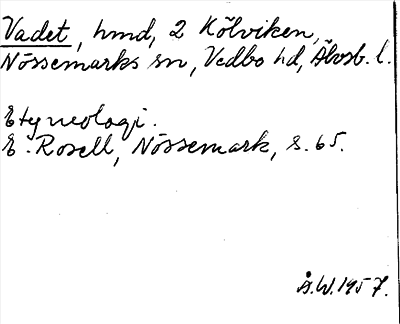 Vadet, hmd, 2 Kölviken,
Nössemarks sn, Vedbo hd, Älvsb. l.
Etymologi.
E. Rosell, Nössemark, s. 65.
Å.W. 1957.